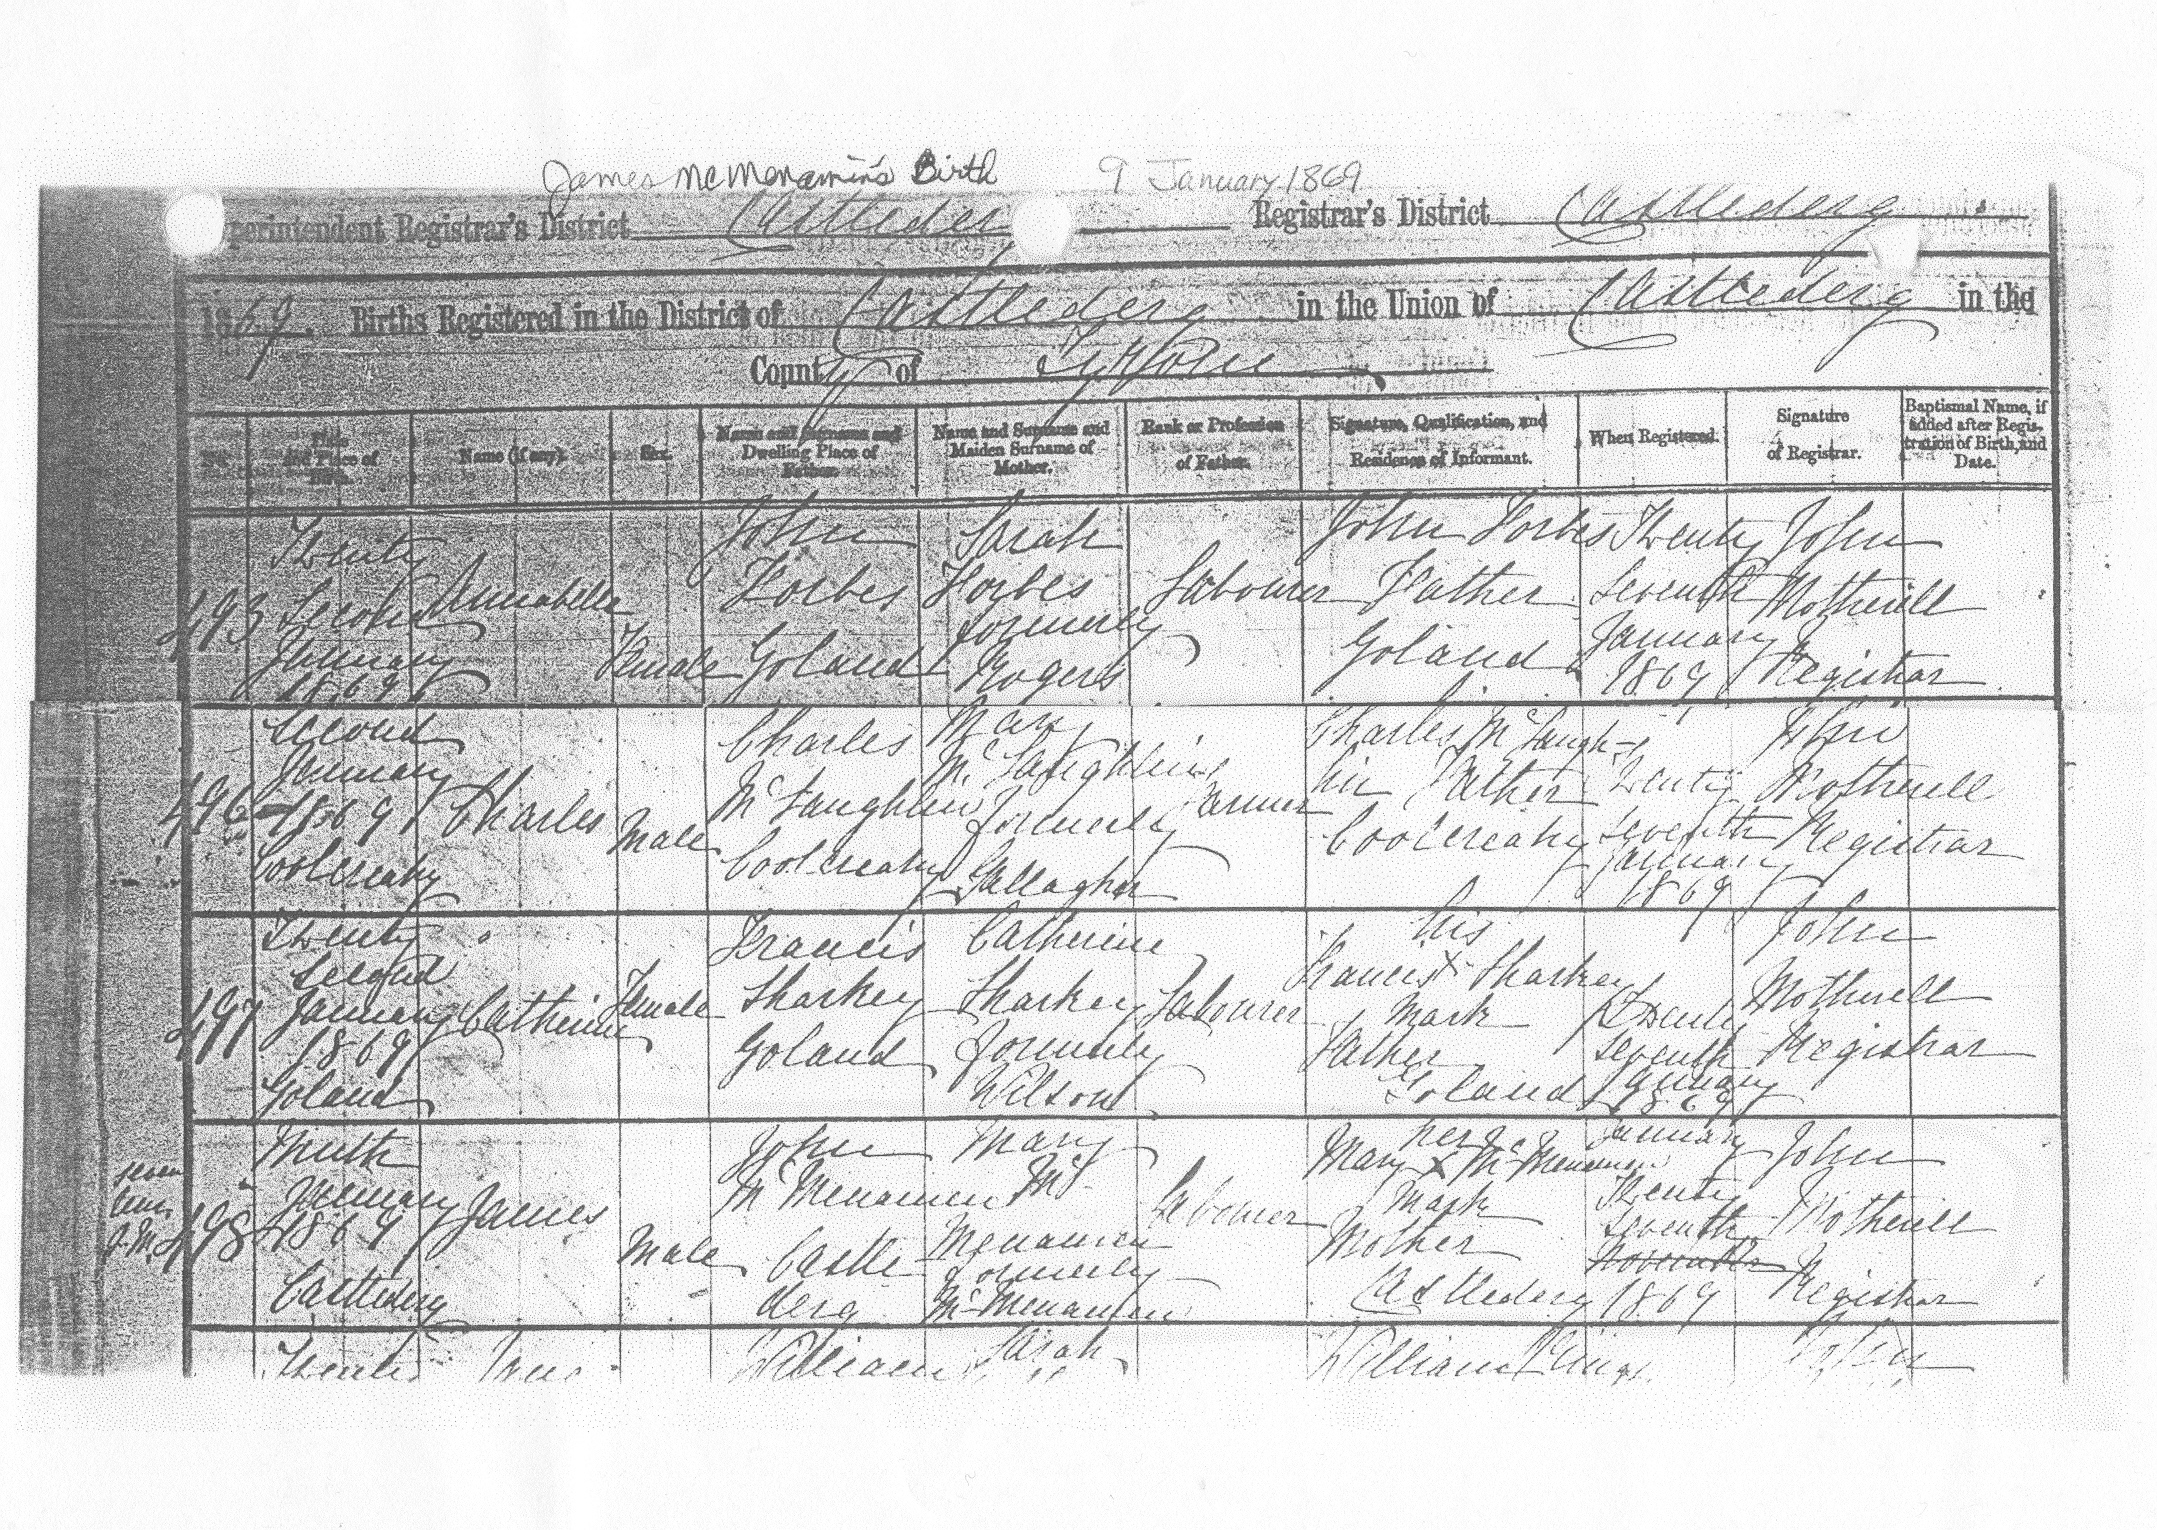 James McMenamin's Birth 9 January 1869
perintendent Registrar's District Castleder Registrar's District Castlederg
1869. Births Registered in the District of Castlederg in the Union of Castlederg in the
County of Tyrone
No. Date and Place of Birth. Name (if any). Sex. Name and Surname and Dwelling Place of Father. Name and Surname and Maiden Surname of Mother. Rank or Profession of Father. Signature, Qualification, and Residence of Informant. When Registered. Signature of Registrar. Baptismal Name, if added after Registration of Birth, and Date.
493 Twenty Second January 1869 Annabella Female John Forbes Goland Sarah Forbes formerly Rogers Labourer John Forbes Father Goland Twenty Seventh January 1869 John Motherill Registrar
496 Second January 1869 Coolcreaghy Charles Male Charles McLaughlin Coolcreaghy Mary McLaughlin formerly Gallagher Farmer Charles McLaughlin Father Coolcreaghy Twenty Seventh January 1869 John Motherill Registrar
497 Twenty Second January 1869 Goland Catherine Female Francis Sharkey Goland Catherine Sharkey formerly Wilson Labourer his Francis X Sharkey Mark Father Goland Twenty Seventh January 1869 John Motherill Registrar
498 Ninth January 1869 Castlederg James Male John McMenamen Castlederg Mary McMenamen formerly McMenamen Labourer her Mary X McMenamen Mark Mother Castlederg January Twenty Seventh November 1869 John Motherill Registrar
William Sarah William John